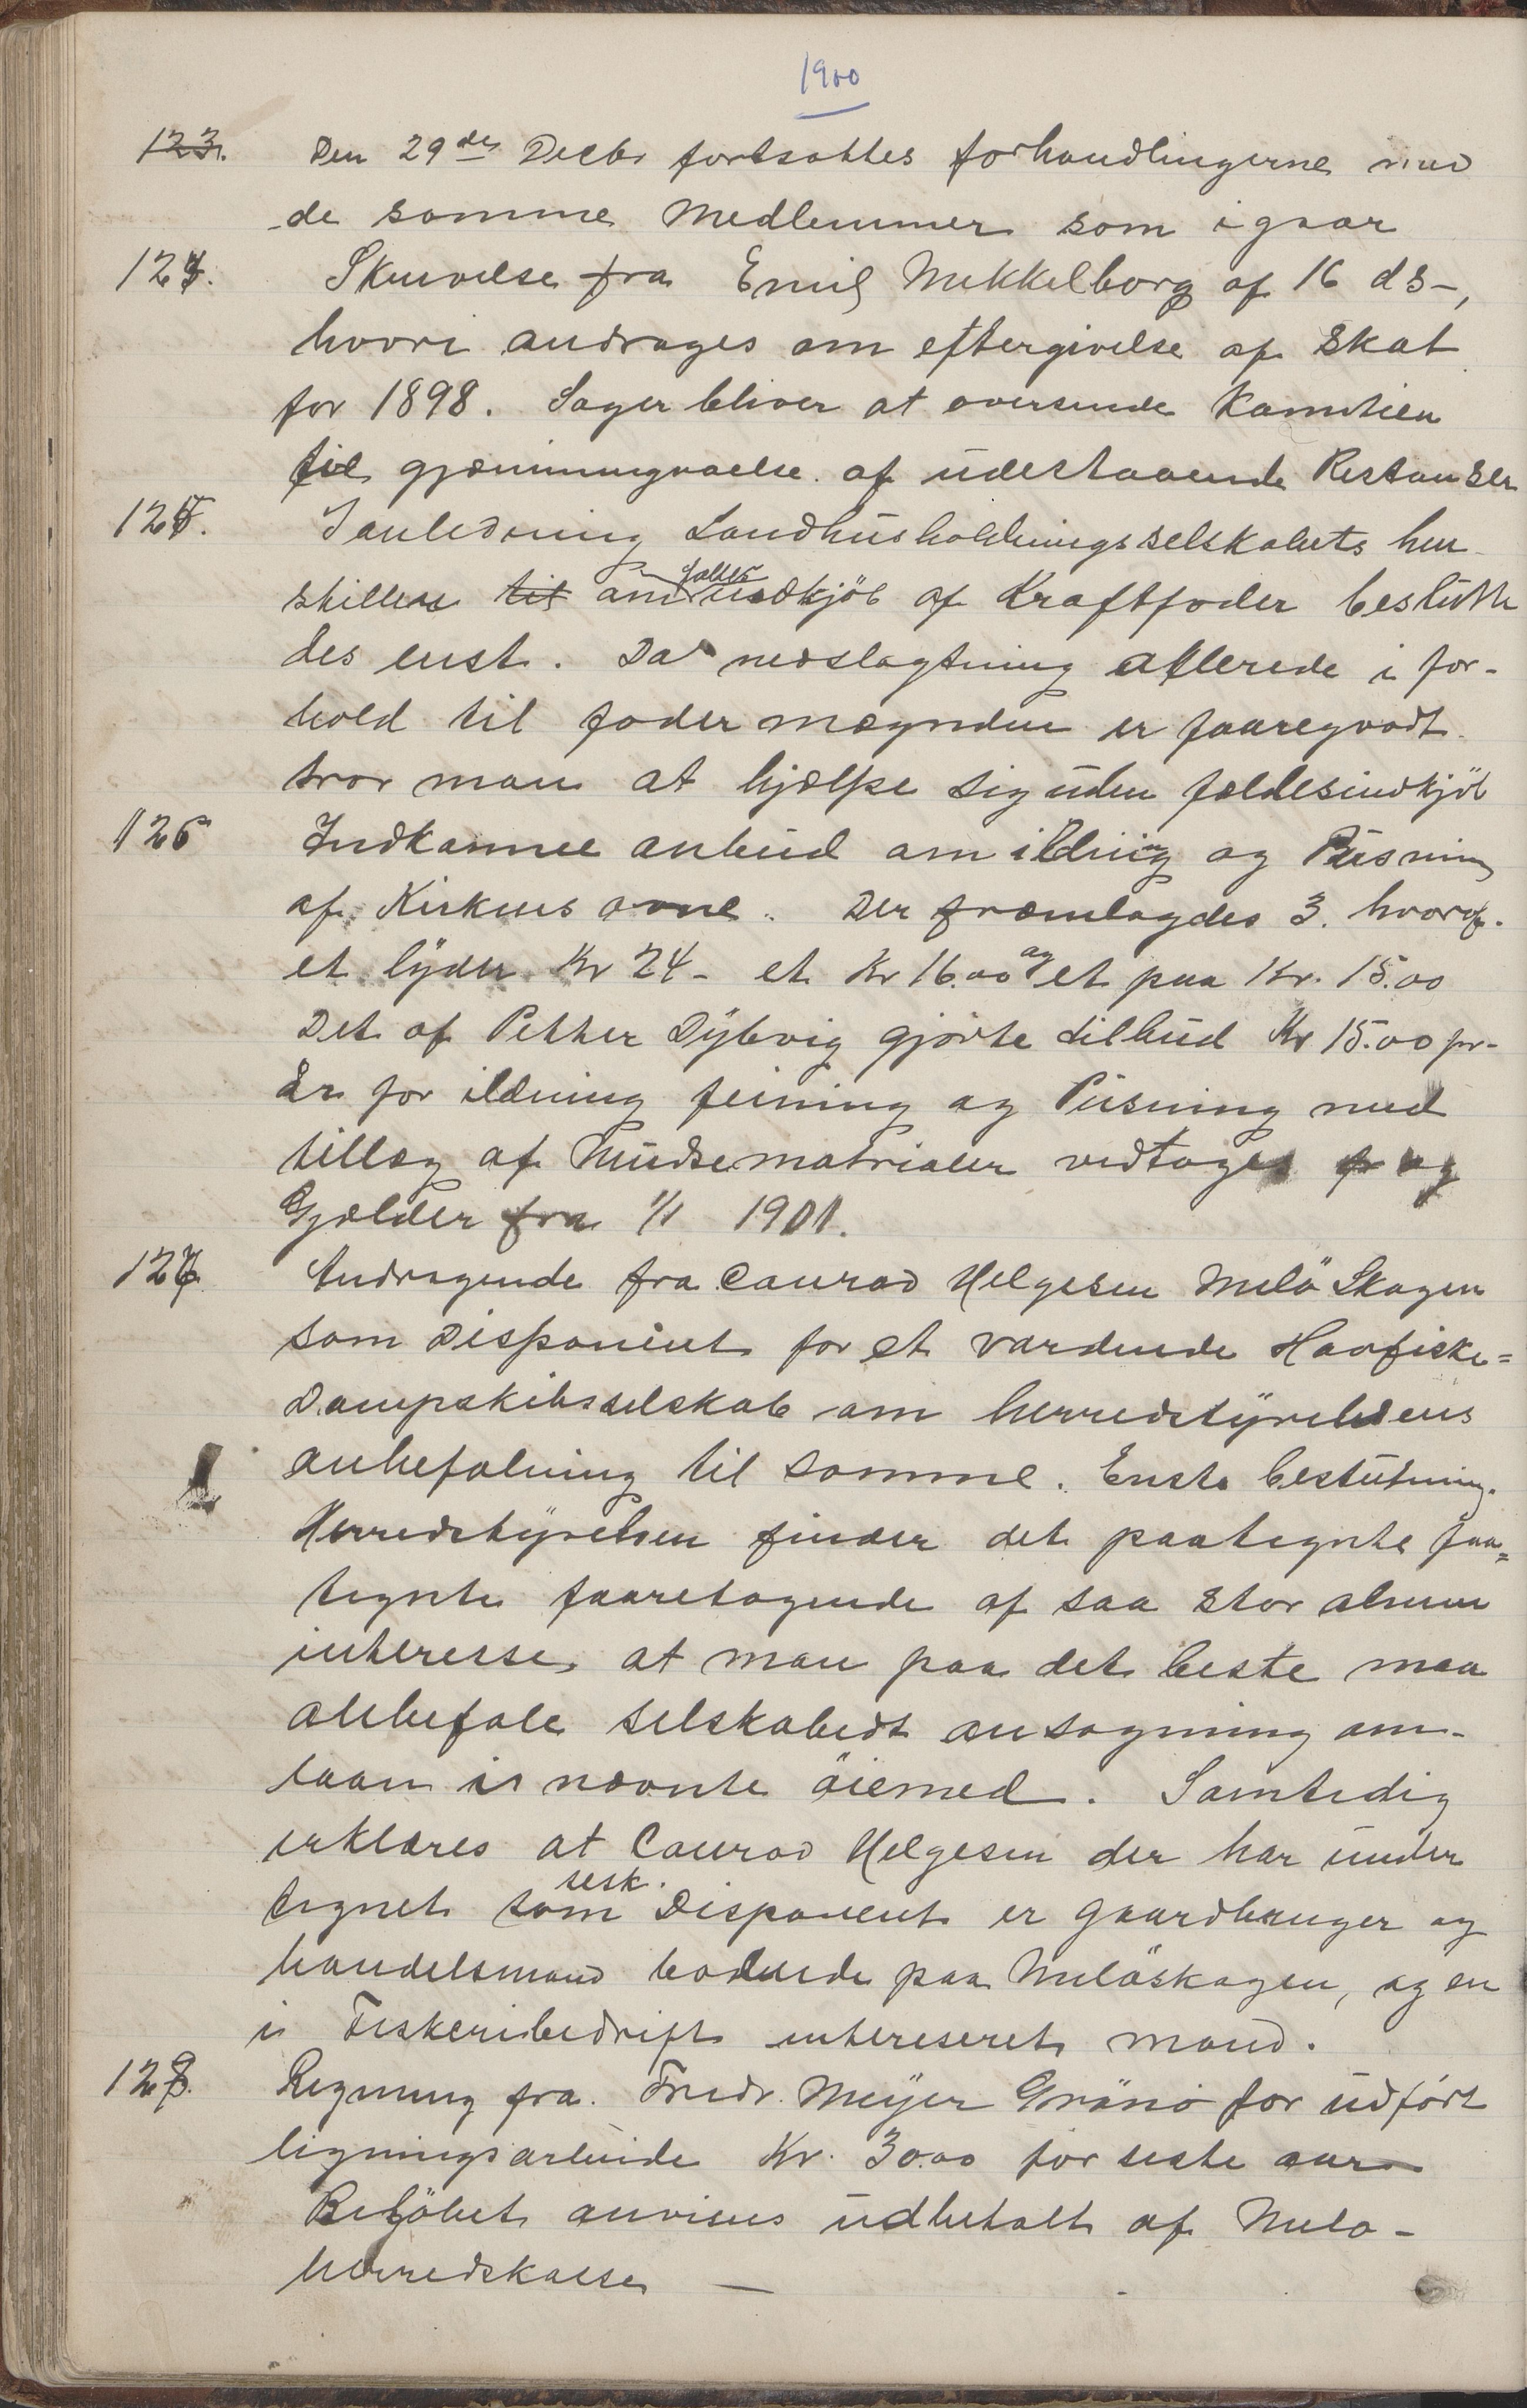 1900
123. Den 29de Decbr fortsattes forhandlingerne med
de samme Medlemmer som igaar
124. Skrivelse fra Emil Mekkelborg af 16 ds-,
hvori andrages om eftergivelse af Skat
for 1898. Sagen bliver at oversende
til af udestaaende Restanser
125. I anledning Landhusholdningsselskabets hen
stillen til om fælles indkjöb af Kraftfoder beslutte
des enst. Da nedslagtning allerede i for-
hold til foder mængden er foregaadt
tror man at hjælpe sig uden fældesindkjöb
126 Indkomne anbud om ildning og Pusning
af Kirkens ovne. Der fræmlagdes 3. hvoraf
et lyder Kr 24- et Kr 16.00 og et paa Kr. 15.00
Det af Petter Dybvig gjorte tilbud Kr 15.00 pr-
år for ildning feining og Pusning med
tillæg af Pudsematrialer vedtages og
Gjælder fra 1/1 1901.
127 Andragende fra Conrad Helgesen Melö Skagen
som Disponent for et vordende Havfiske=
Dampskibsselskab om herredstyrelsens
anbefalning til samme. Enst. beslutning.
Herredstyrelsen finder det paategnte paa=
tegnte foretagende af saa stor almen
interesse, at man paa det beste maa
anbefale selskabedt ansøgning om-
laan i nævnte öiemed. Samtidig
erklæres at Conrad Helgesen der har under
tegnet som selsk. Disponent er gaardbruger og
handelsmand boende paa Melöskagen, og en
i Fiskeribedrift intereseret mand.
128. Regning fra. Fredr. Meyer Grönö for udfört
ligningsarbeide Kr. 30.00 for siste aar
Belöbet anvises udbetalt af Melö-
herredskasse —